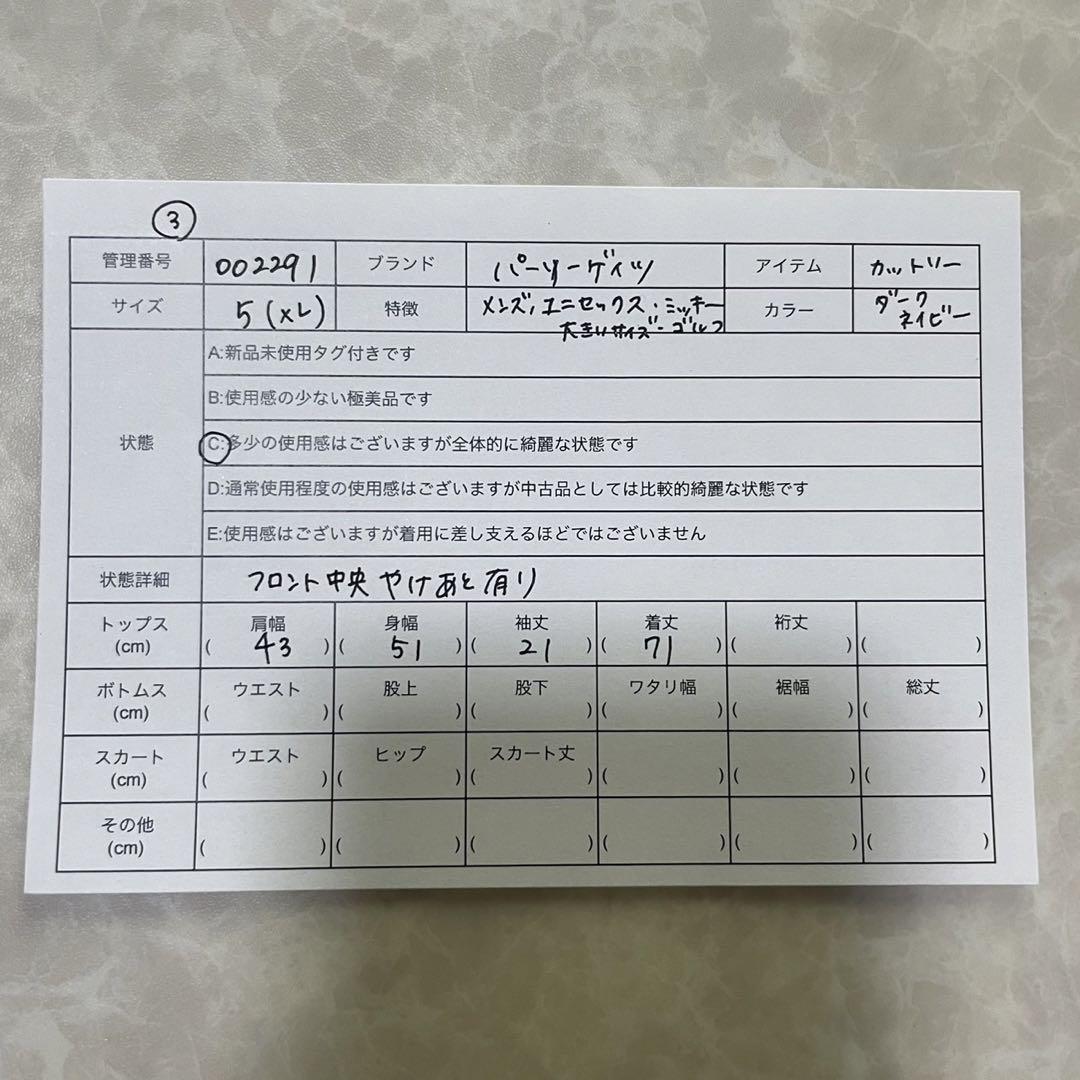 ③
管理番号 002291 ブランド パーリーゲイツ アイテム カットソー
サイズ 5(XL) 特徴 メンズ,ユニセックス・ミッキー 大きいサイズ・ゴルフ カラー ダークネイビー
状態
A:新品未使用タグ付きです
B:使用感の少ない極美品です
C:多少の使用感はございますが全体的に綺麗な状態です
D:通常使用程度の使用感はございますが中古品としては比較的綺麗な状態です
E:使用感はございますが着用に差し支えるほどではございません
状態詳細 フロント中央 やけあと有り
トップス 肩幅 身幅 袖丈 着丈 裄丈
(cm) ( 43 ) ( 51 ) ( 21 ) ( 71 ) ( ) ( )
ボトムス ウエスト 股上 股下 ワタリ幅 裾幅 総丈
(cm) ( ) ( ) ( ) ( ) ( ) ( )
スカート ウエスト ヒップ スカート丈
(cm) ( ) ( ) ( ) ( ) ( ) ( )
その他
(cm) ( ) ( ) ( ) ( ) ( ) ( )